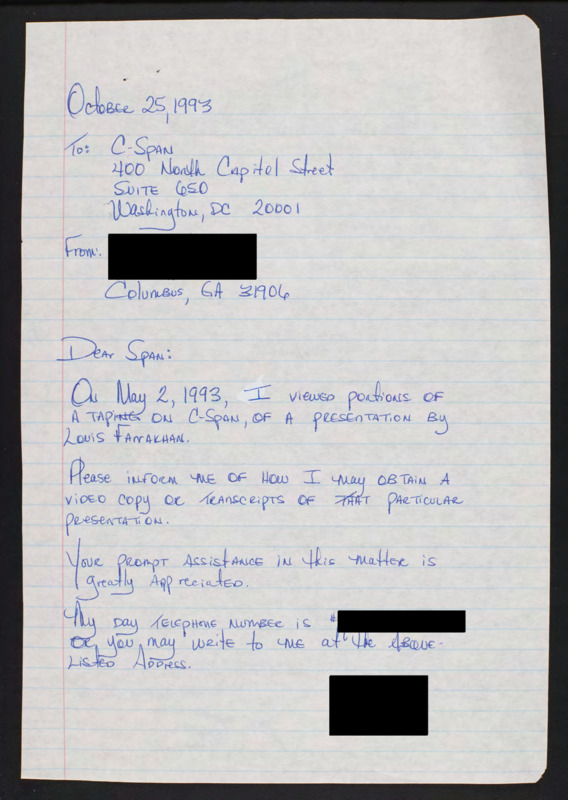 October 25, 1993
To: C-Span
400 North Capitol Street
Suite 650
Washington, DC 20001
From:
Columbus, GA 31906
Dear Span:
On May 2, 1993, I viewed portions of
a taping on C-Span, of a presentation by
Louis Farrakhan.
Please inform me of how I may obtain a
video copy or transcripts of that particular
presentation.
Your prompt assistance in this matter is
greatly appreciated.
My day telephone number is #
or you may write to me at the above-
listed address.